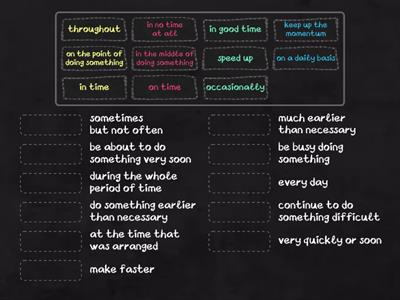 throughout
in no time
at all
in good time
keep up the
momentum
on the point of
doing something
in the middle of
doing something
speed up
on a daily basis
in time
on time
occasionally
sometimes
but not often
be about to do
something very soon
during the whole
period of time
do something earlier
than necessary
at the time that
was arranged
make faster
much earlier
than necessary
be busy doing
something
every day
continue to do
something difficult
very quickly or soon